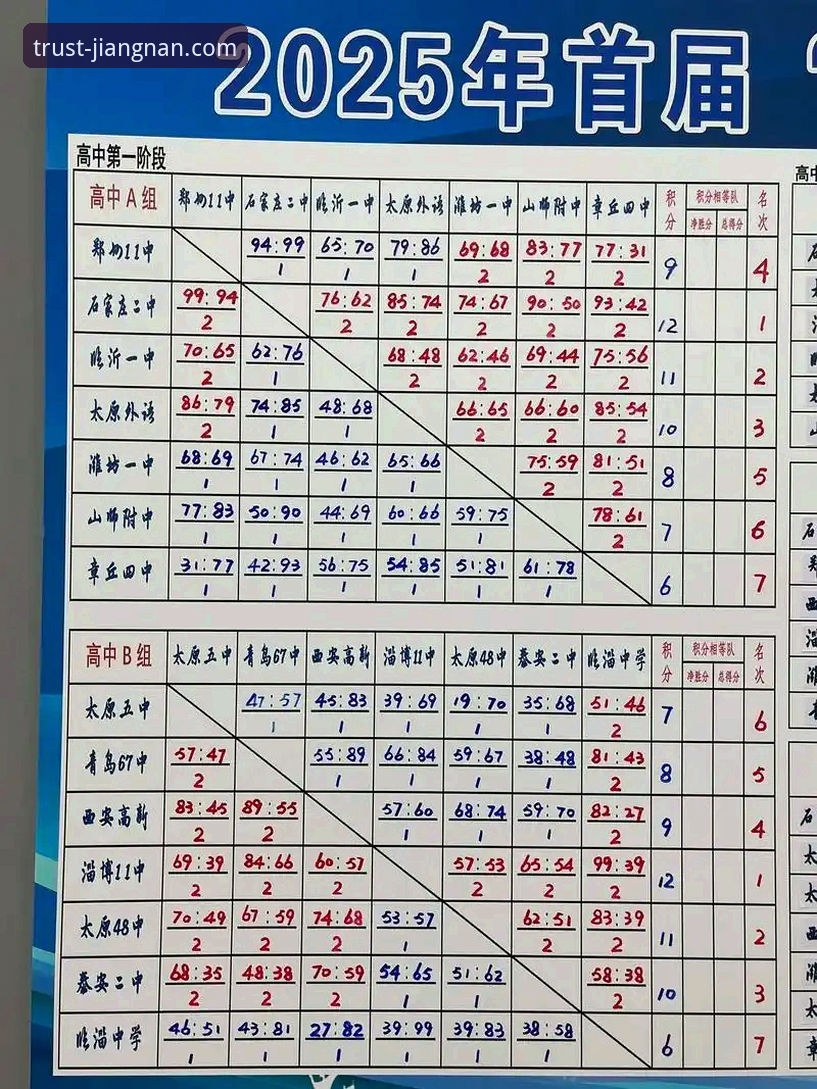 trust-jiangnan.com
2025年首届
高中第一阶段
高中A组 郑州11中 石家庄二中 临沂一中 太原外语 潍坊一中 山师附中 章丘四中 积分 积分相等队 名次
净胜分 总得分
郑州11中 94:99 65:70 79:86 69:68 83:77 77:31 9 4
1 1 1 2 2 2
石家庄二中 99:94 76:62 85:74 74:67 90:50 93:42 12 1
2 2 2 2 2 2
临沂一中 70:65 62:76 68:48 62:46 69:44 75:56 11 2
2 1 2 2 2 2
太原外语 86:79 74:85 48:68 66:65 66:60 85:54 10 3
2 1 1 2 2 2
潍坊一中 68:69 67:74 46:62 65:66 75:59 81:51 8 5
1 1 1 1 2 2
山师附中 77:83 50:90 44:69 60:66 59:75 78:61 7 6
1 1 1 1 1 2
章丘四中 31:77 42:93 56:75 54:85 51:81 61:78 6 7
1 1 1 1 1 1
高中B组 太原五中 青岛67中 西安高新 淄博11中 太原48中 泰安二中 临淄中学 积分 积分相等队 名次
净胜分 总得分
太原五中 47:57 45:83 39:69 19:70 35:68 51:46 7 6
1 1 1 1 1 2
青岛67中 57:47 55:89 66:84 59:67 38:48 81:43 8 5
2 1 1 1 1 2
西安高新 83:45 89:55 57:60 68:74 59:70 82:27 9 4
2 2 1 1 1 2
淄博11中 69:39 84:66 60:57 57:53 65:54 99:39 12 1
2 2 2 2 2 2
太原48中 70:49 67:59 74:68 53:57 62:51 83:39 11 2
2 2 2 1 2 2
泰安二中 68:35 48:38 70:59 54:65 51:62 58:38 10 3
2 2 2 1 1 2
临淄中学 46:51 43:81 27:82 39:99 39:83 38:58 6 7
1 1 1 1 1 1
高中